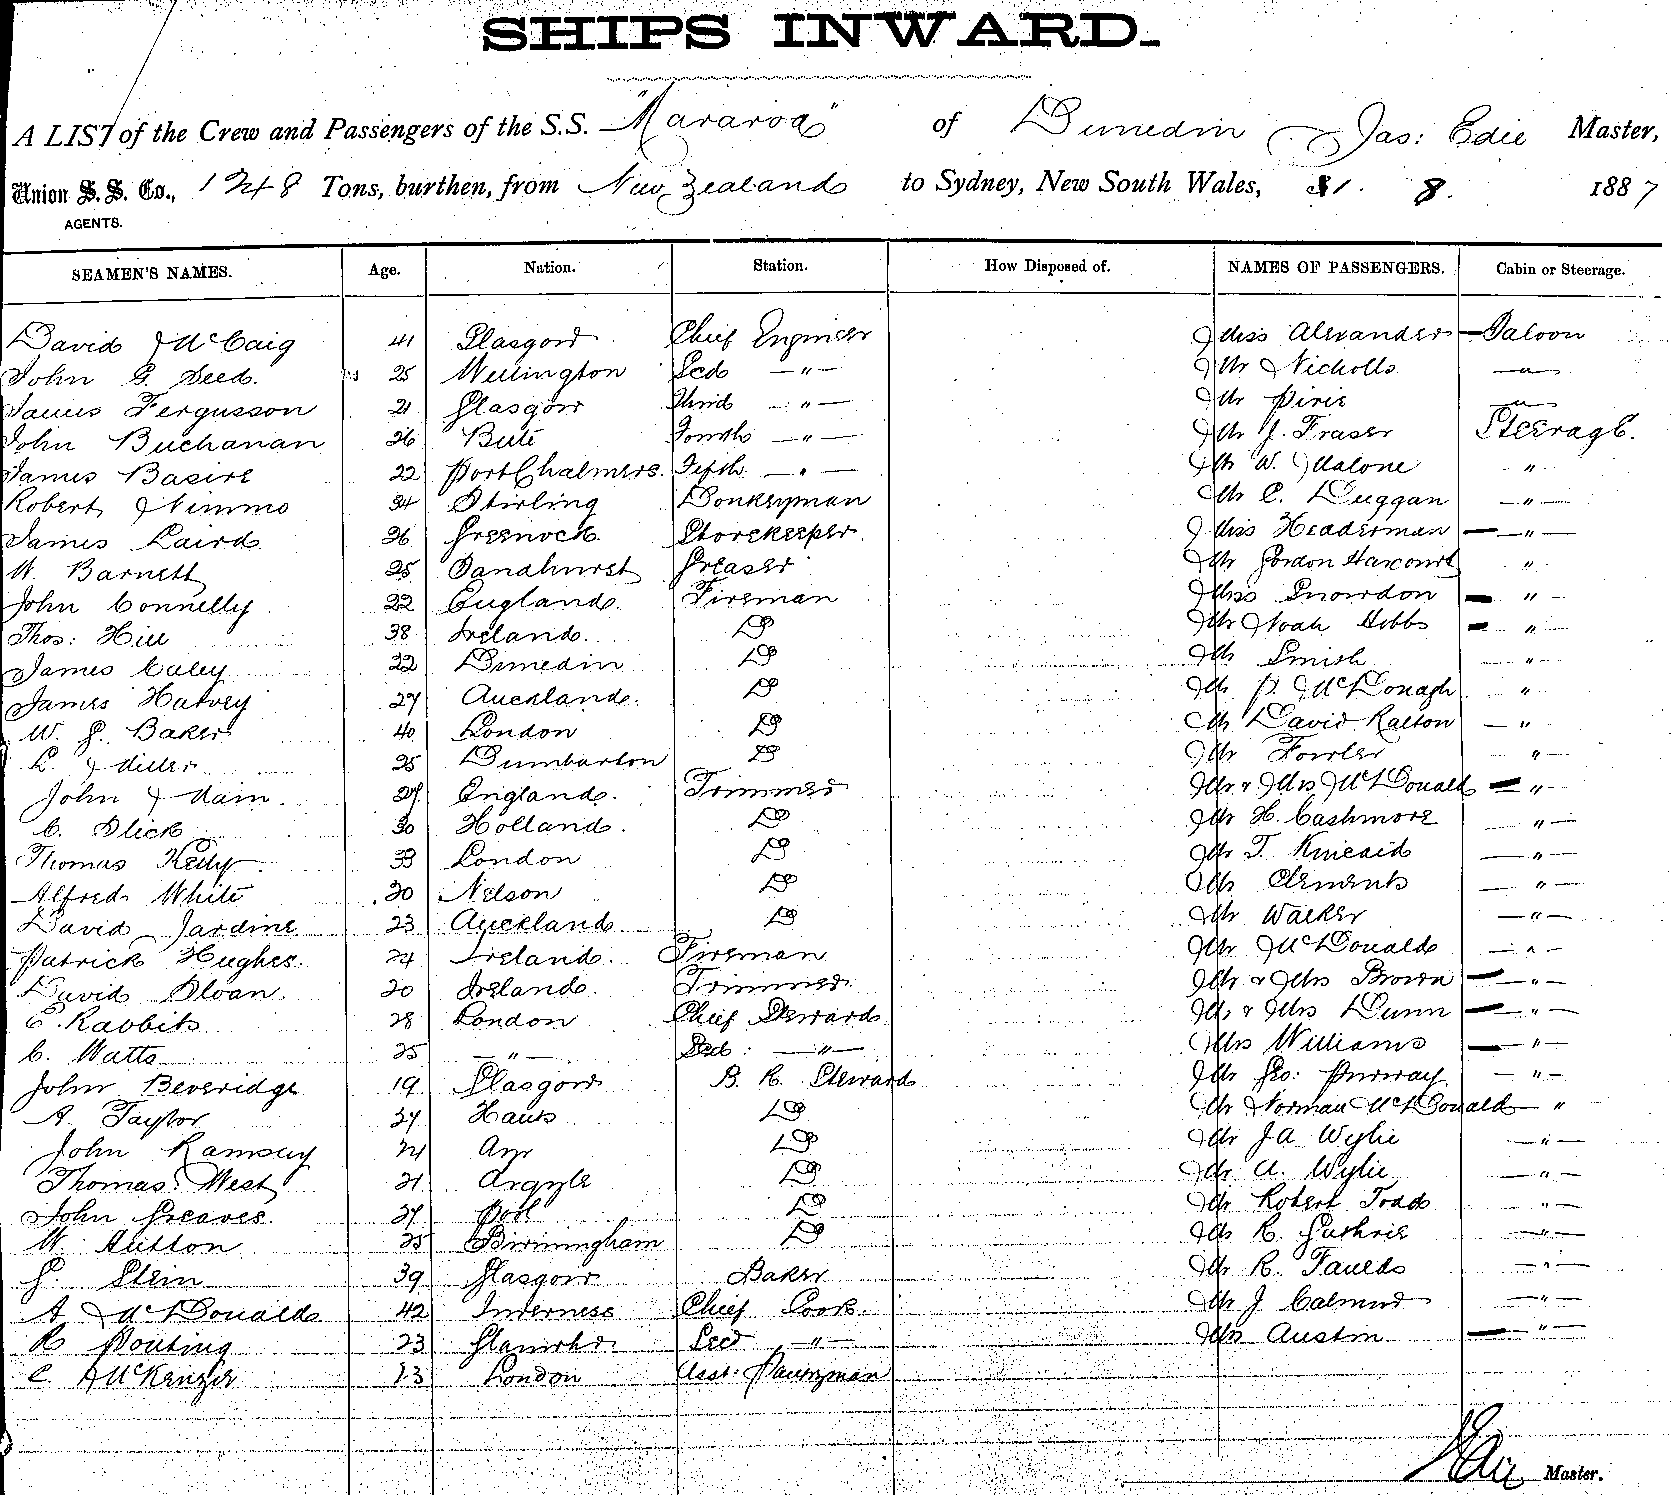 SHIPS INWARD.
A LIST of the Crew and Passengers of the S.S. "Mararoa" of Dunedin Jas: Edie Master,
Union S. S. Co., 1248 Tons, burthen, from New Zealand to Sydney, New South Wales, 31. 8. 1887
AGENTS.
SEAMEN'S NAMES. Age. Nation. Station. How Disposed of. NAMES OF PASSENGERS. Cabin or Steerage.
David McCaig 41 Glasgow Chief Engineer Miss Alexander — Saloon
John G Deed. 25 Wellington Secd — " — Mr Nicholls — " —
James Fergusson 21 Glasgow Third — " — Mr Pirie — " —
John Buchanan 26 Bute Fourth — " — Mr J. Fraser Steerage.
James Basire 22 Port Chalmers. Fifth — " — Mr W. Malone "
Robert Nimmo 34 Stirling Donkeyman Mr C. Duggan — " —
James Laird 36 Greenock Storekeeper Miss Headerman — " —
W. Barnett 25 Sandhurst Greaser Mr Gordon Harcourt "
John Connelly 22 England. Fireman Miss Snowdon — " —
Thos: Hill 38 Ireland. Do Mr Noah Hibbs — " —
James Caley 22 Dunedin Do Mr Smith — " —
James Harvey 27 Auckland. Do Mr P. McDonagh "
W. G. Baker 40 London Do Mr David Ralton — "
L. Miller 25 Dumbarton Do Mr Fowler " —
John Main. 27 England. Trimmer Mr & Mrs McDonald — " —
C. Slick 30 Holland. Do Mr H. Cashmore — " —
Thomas Kelly. 33 London Do Mr T. Kincaid — " —
Alfred White 30 Nelson Do Mr Clements — " —
David Jardine 23 Auckland Do Mr Walker — " —
Patrick Hughes. 24 Ireland. Fireman Mr McDonald — " —
David Sloan. 30 Ireland. Trimmer Mr & Mrs Brown — " —
C. Rabbits 28 London Chief Steward Mr & Mrs Dunn — " —
C. Watts 35 — " — Secd: — " — Mrs Williams — " —
John Beveridge 19 Glasgow B. R. Steward Mr Geo: — " —
A. Taylor 37 Hants Do Mr Norman McDonald — "
John Ramsay 24 Ayr Do Mr J A Wylie — " —
Thomas West 21 Argyle Do Mr A. Wylie — " —
John Greaves. 37 Do Mr Robert Todd — " —
W. 25 Birmingham Do Mr R. Guthrie — " —
G. Stein 39 Glasgow Baker Mr R. Faulds — " —
A McDonald 42 Inverness Chief Cook Mr J. — " —
R Pouting 23 Secd — " — Mrs Austin — " —
C. McKenzie 23 London Asst: Pantryman
Edie Master.